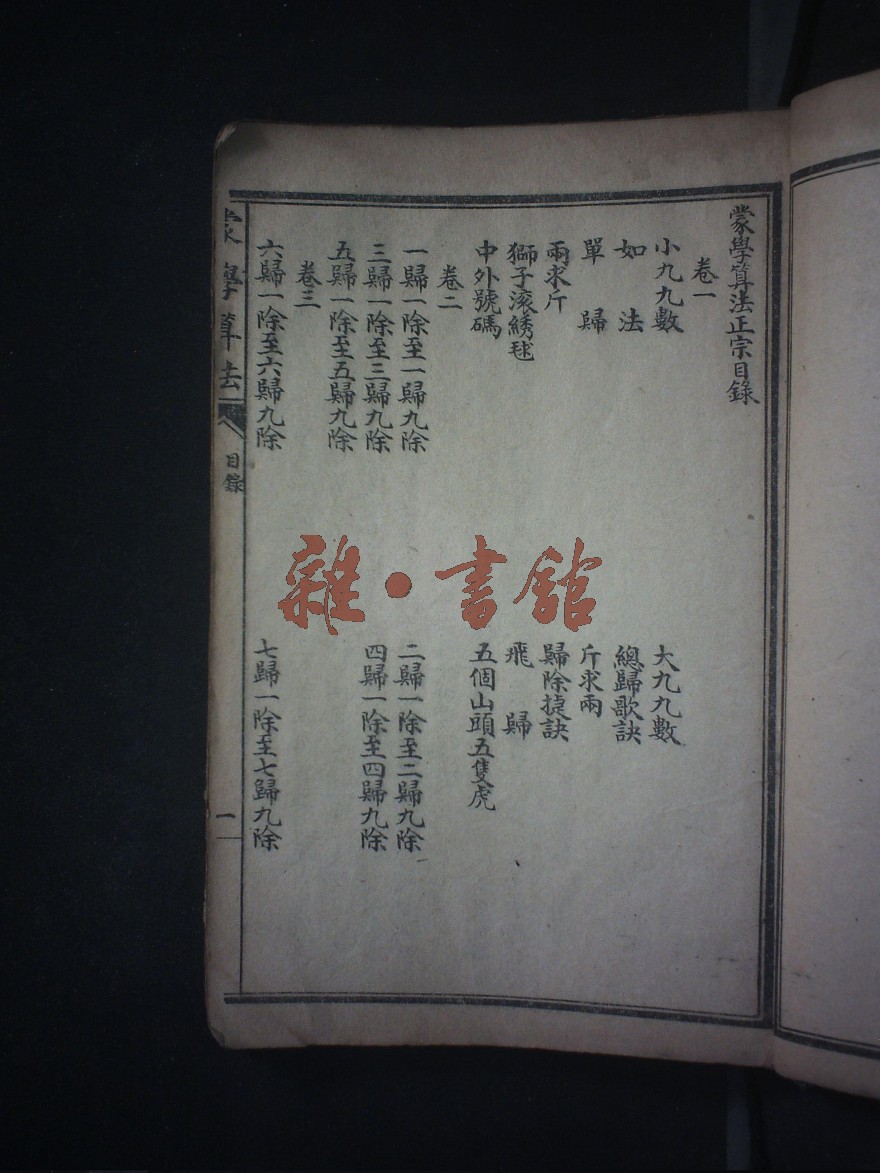 蒙學算法正宗目錄
卷一
小九九數　大九九數
如法　總歸歌訣
單歸　斤求兩
兩求斤　歸除捷訣
獅子滚綉毬　飛歸
中外號碼　五個山頭五隻虎
卷二
一歸一除至一歸九除　二歸一除至二歸九除
三歸一除至三歸九除　四歸一除至四歸九除
五歸一除至五歸九除
卷三
六歸一除至六歸九除　七歸一除至七歸九除
蒙學算法　目錄　一
雜·書館